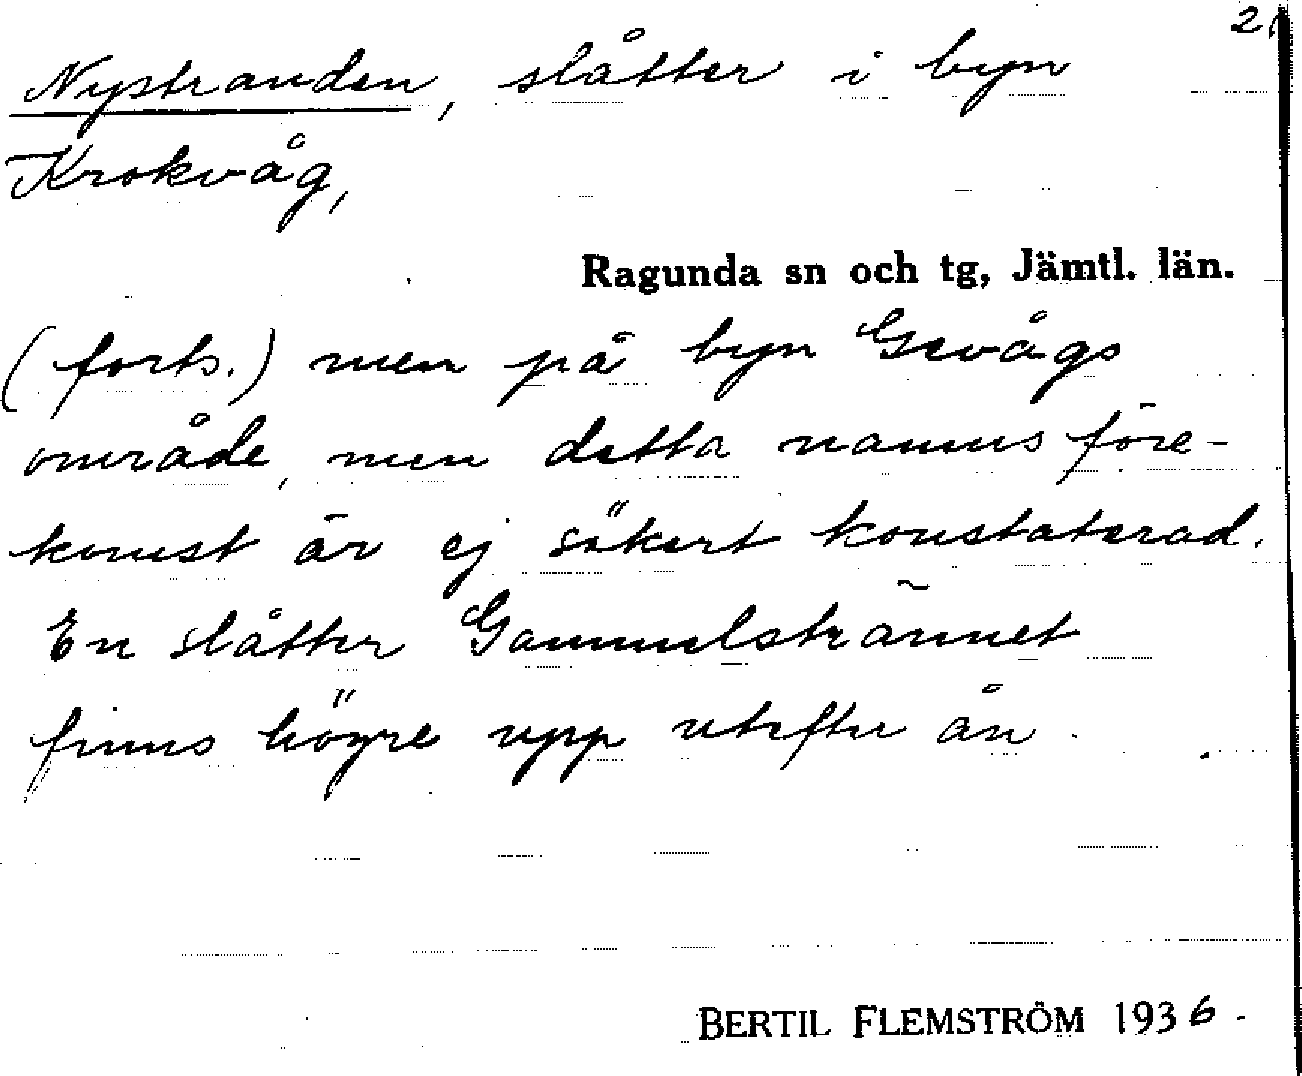 2(
Nystranden, slåtter i byn
Krokvåg,
Ragunda sn och tg, Jämtl. län.
(forts.) men på byn Gevågs
område, men detta namns före-
komst är ej säkert konstaterad.
En slåtter Gammelstrännet
finns högre upp utefter ån.
BERTIL FLEMSTRÖM 1936.